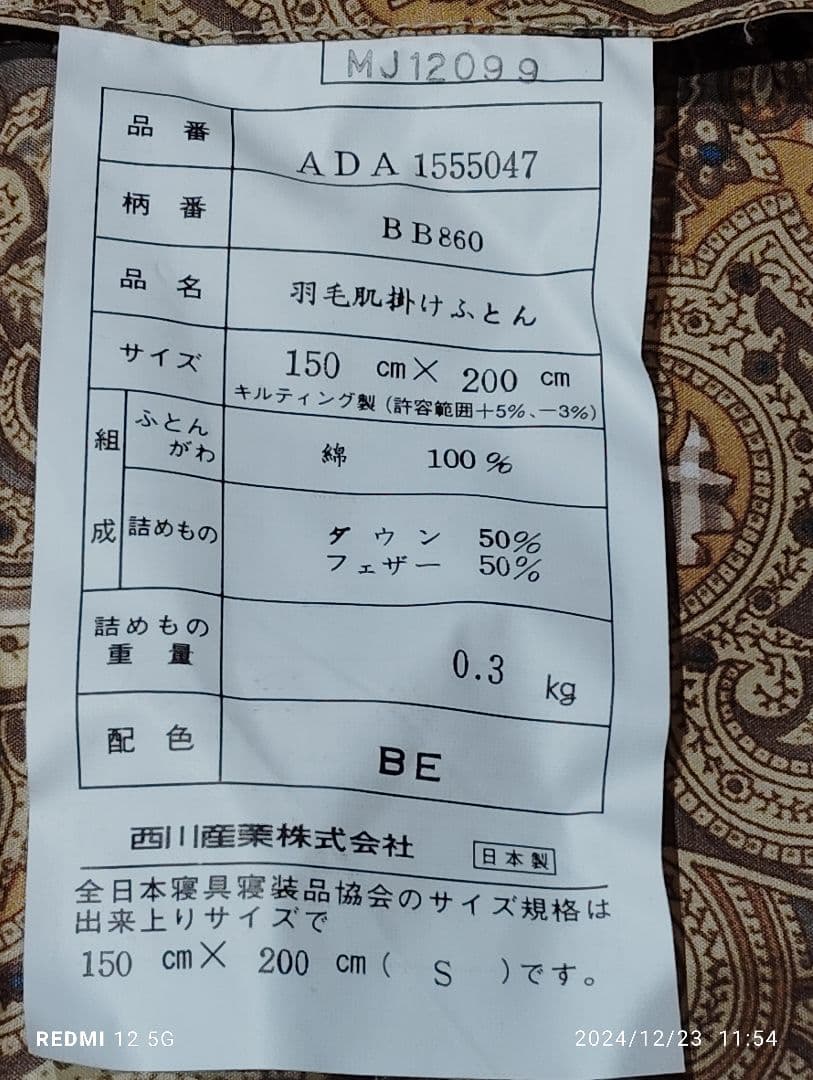 MJ12099
品番 ADA 1555047
柄番 BB860
品名 羽毛肌掛けふとん
サイズ 150 cm× 200 cm
キルティング製(許容範囲+5%、−3%)
組成 ふとんがわ 綿 100%
詰めもの ダウン 50%
フェザー 50%
詰めもの重量 0.3 kg
配色 BE
西川産業株式会社 日本製
全日本寝具寝装品協会のサイズ規格は
出来上りサイズで
150 cm× 200 cm( S )です。
REDMI 12 5G 2024/12/23 11:54